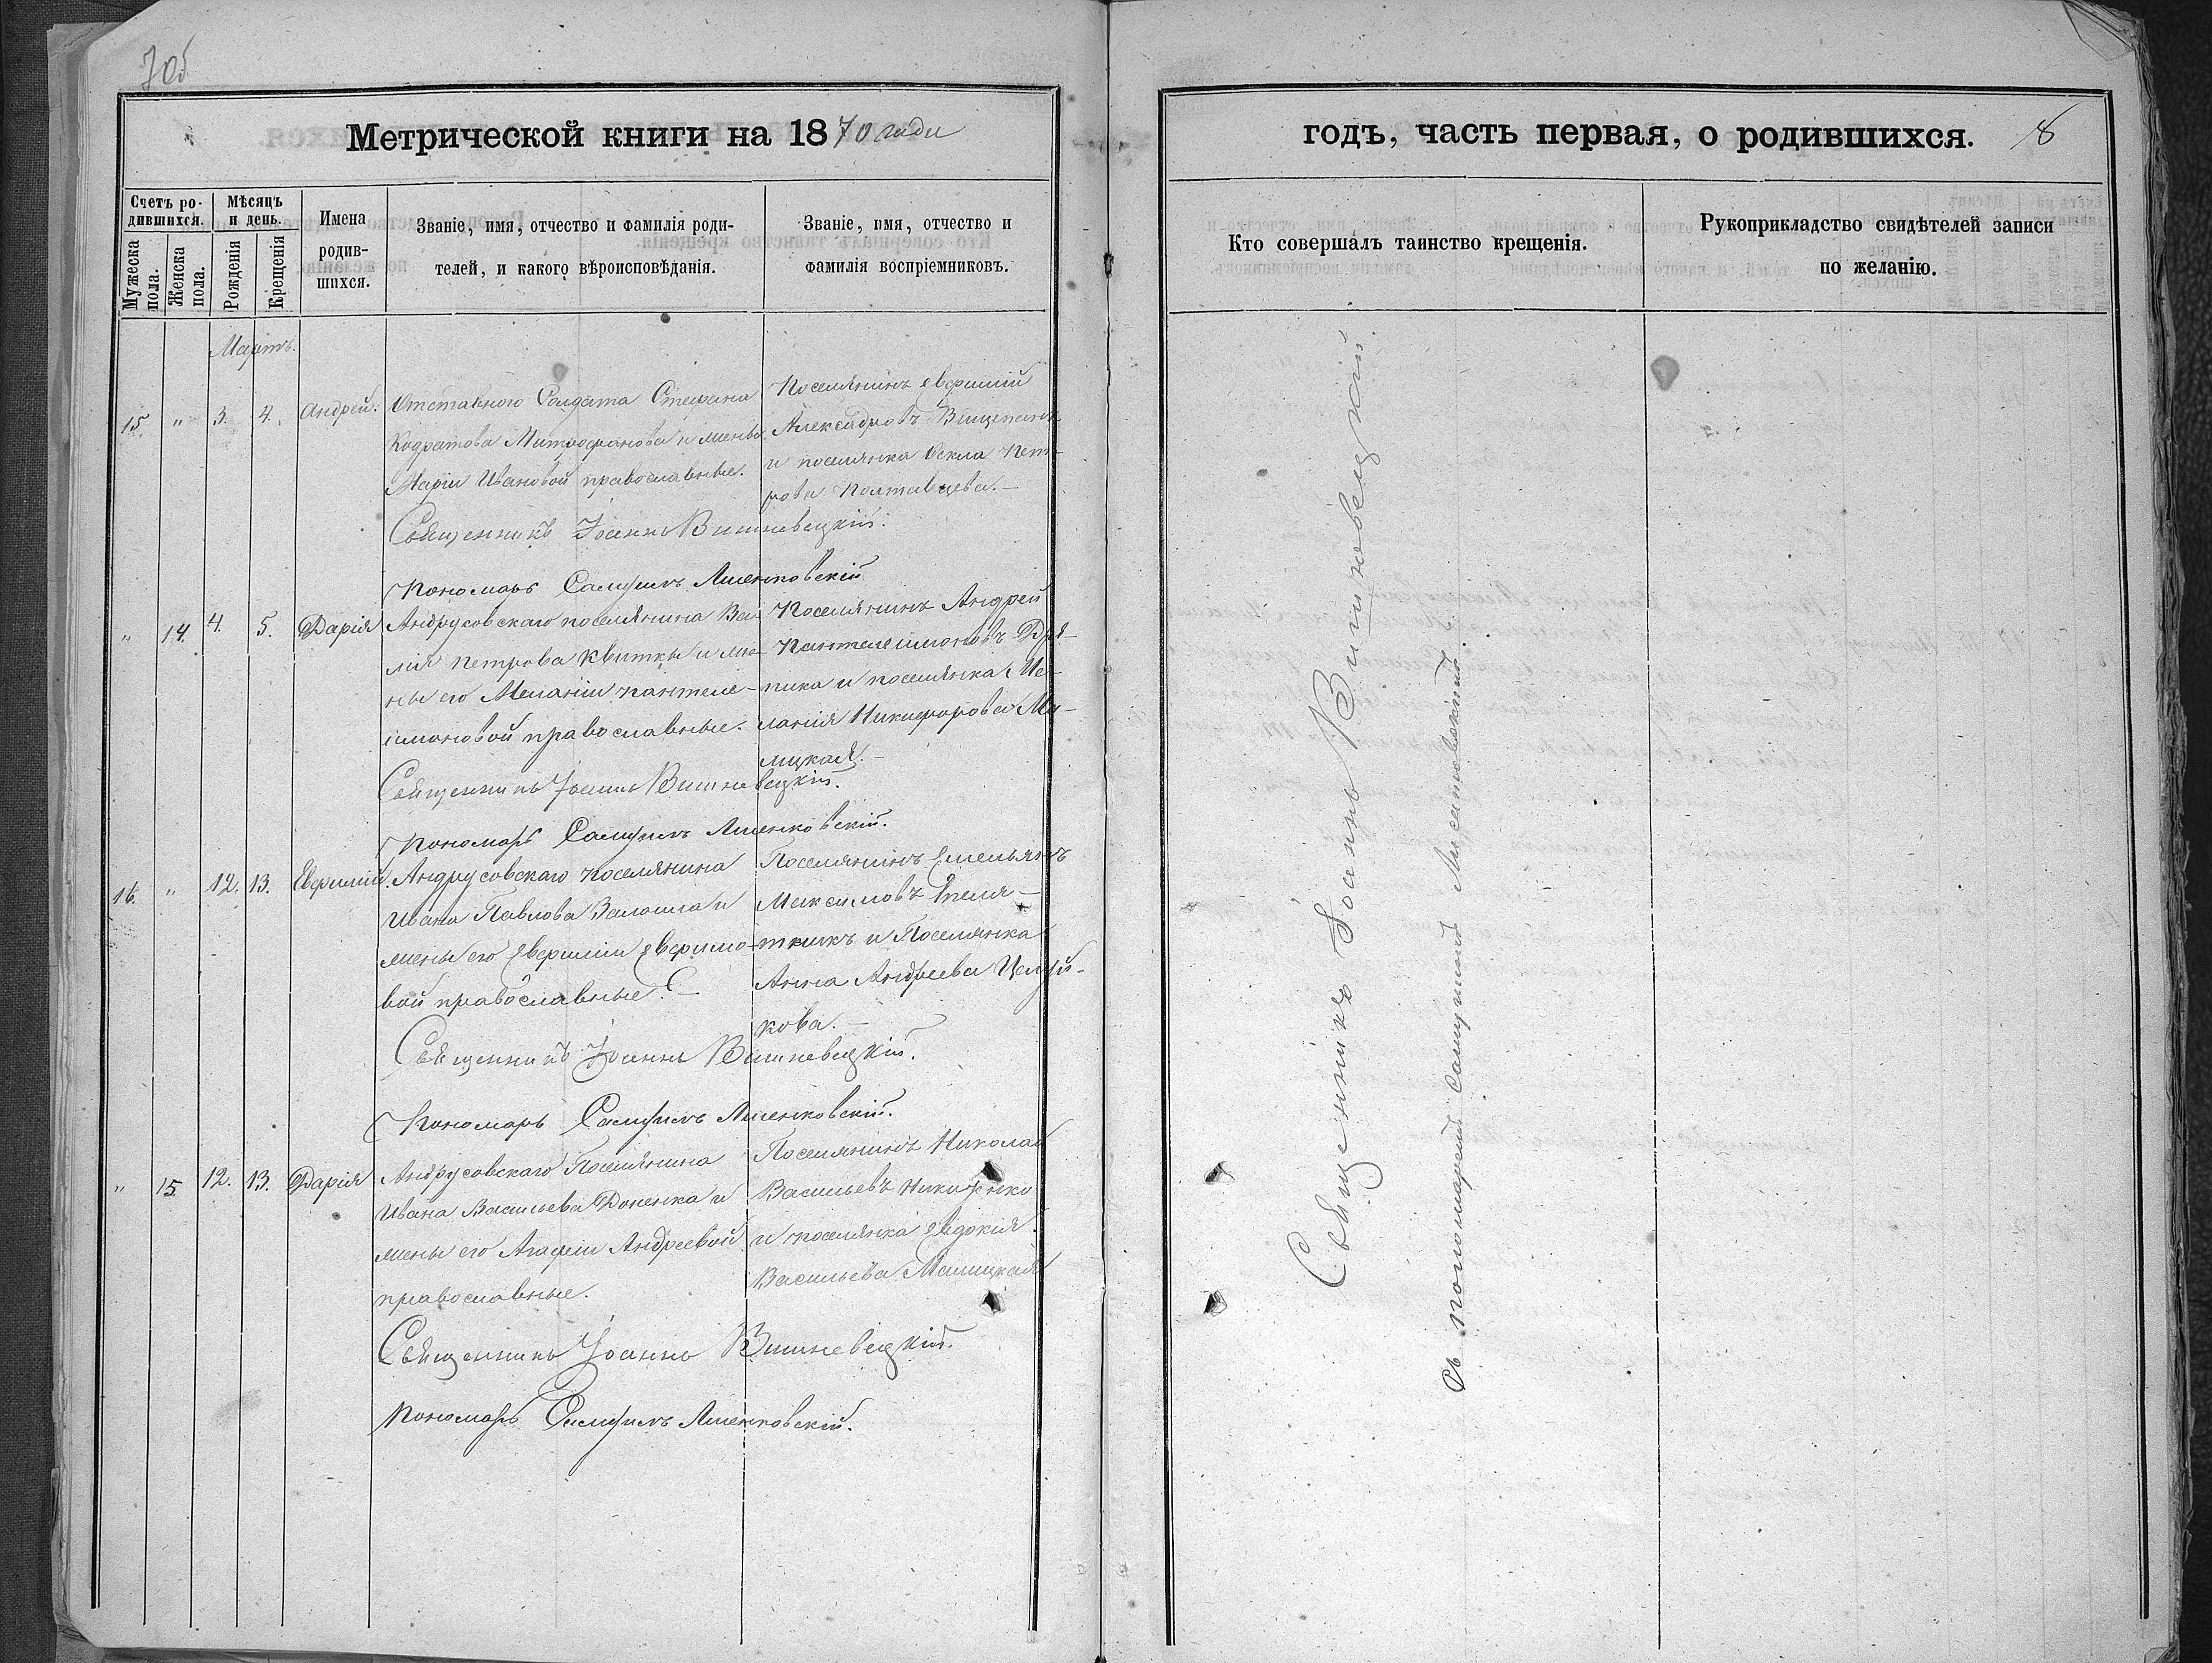 705
Метрической книги на 1870 года
годъ, часть первая, о родившихся. 8
Счетъ родившихся.
Мужеска пола.
Женска пола.
Мѣсяцъ и день.
Рожденія
Крещенія
Имена родив-
шихся.
Званіе, имя, отчество и фамилія роди-
телей, и какого вѣроисповѣданія.
Званіе, имя, отчество и
фамилія воспріемниковъ.
Кто совершалъ таинство крещенія.
Рукоприкладство свидѣтелей записи
по желанію.
Мартъ.
15. " 3. 4. Андрей.
Отставного Солдата Стефана
Кодратова Митрофанова и жены
Маріи Ивановой православные.
Поселянинъ Евфимій
Александровъ
и поселянка Фекла Пет-
рова Полтавцева.—
Священникъ Іоаннъ Вишневецкій.
Пономарь
" 14. 4. 5. Дарія
Андрусовскаго поселянина Васи-
лія Петрова Квитки и же-
ны его Меланіи Пантеле-
имоновой православные.
Поселянинъ Андрей
Пантелеимоновъ Дря-
пика и поселянка Ме-
ланія Никифорова Ма-
лицкая.—
Священникъ Іоаннъ Вишневецкій.
Пономарь
16. " 12. 13. Евфимій.
Андрусовскаго поселянина
Ивана Павлова и
жены его Евфиміи Евфимо-
вой православные.—
Поселянинъ Емельянъ
Максимовъ
и Поселянка
Анна Андреева Целуй-
кова.—
Священникъ Іоаннъ Вишневецкій.
Пономарь
" 15. 12. 13. Дарія
Андрусовскаго Поселянина
Ивана Васильева Доненка и
жены его Агафіи Андреевой
православные.
Поселянинъ Николай
Васильевъ
и поселянка Евдокія
Васильева Малицкая
Священникъ Іоаннъ Вишневецкій.
Пономарь
Священникъ Іоаннъ Вишневецкій
Съ пономаремъ